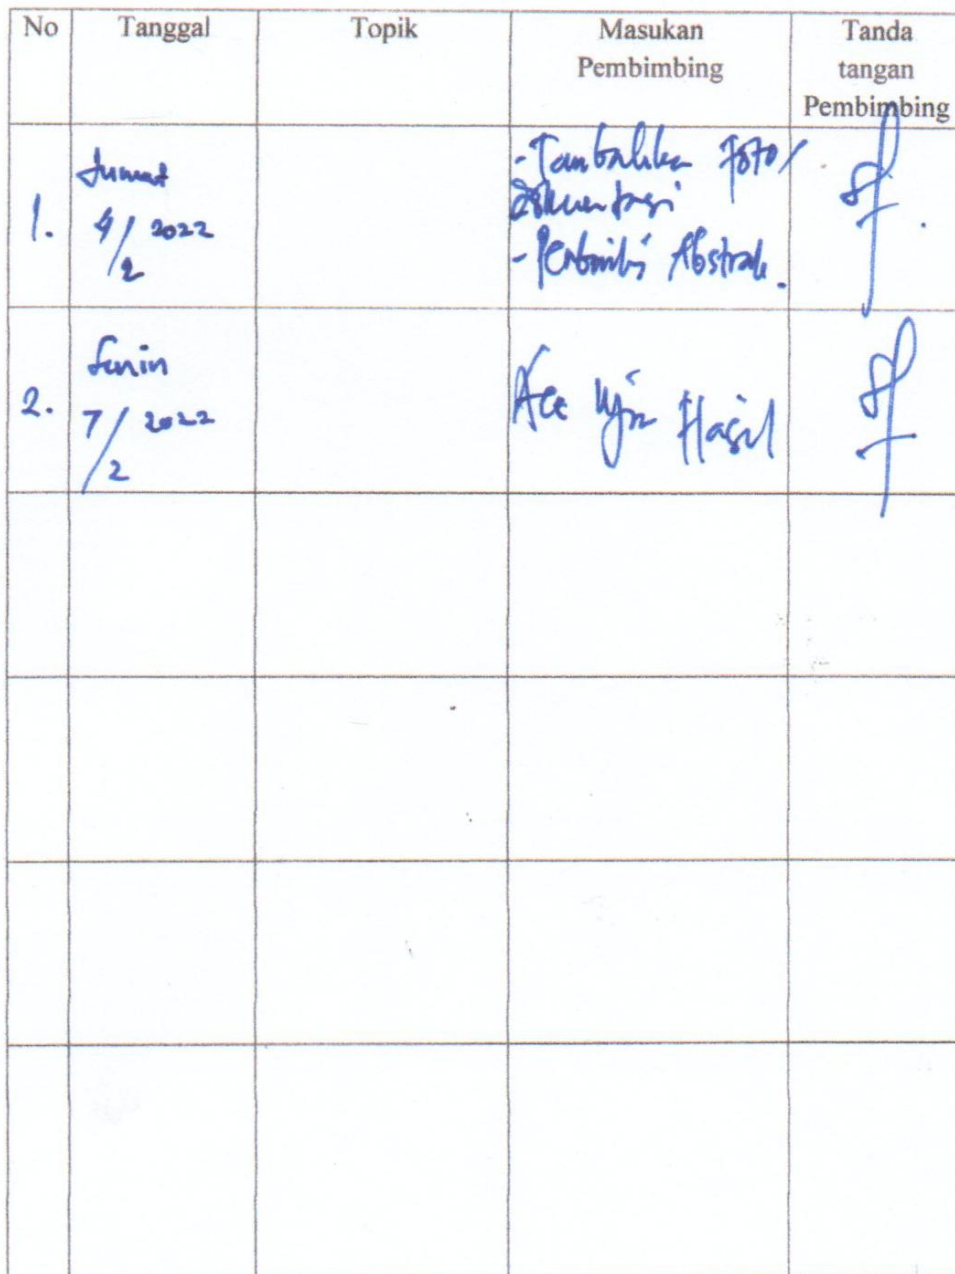 No Tanggal Topik Masukan Pembimbing Tanda tangan Pembimbing
1. Jumat 4/2 2022
- Tambahkan Foto/
Dokumentasi
- Perbaiki Abstrak.
2. Senin 7/2 2022
Acc Ujian Hasil